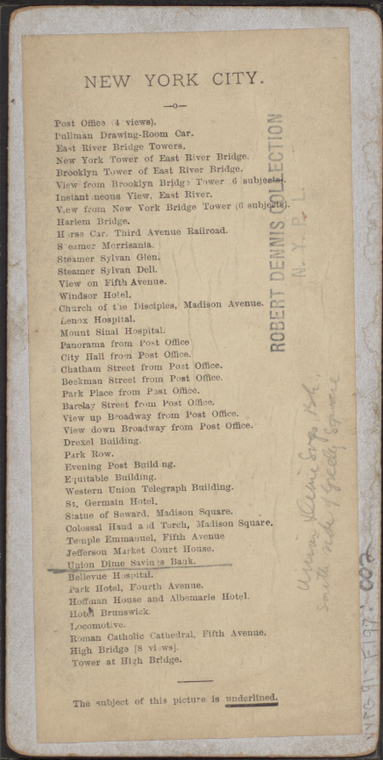 NEW YORK CITY.
—o—
Post Office (4 views).
Pullman Drawing-Room Car.
East River Bridge Towers.
New York Tower of East River Bridge.
Brooklyn Tower of East River Bridge.
View from Brooklyn Bridge Tower 6 subjects).
Instantaneous View, East River.
View from New York Bridge Tower (6 subjects).
Harlem Bridge.
Horse Car, Third Avenue Railroad.
Steamer Morrisania.
Steamer Sylvan Glen.
Steamer Sylvan Dell.
View on Fifth Avenue.
Windsor Hotel.
Church of the Disciples, Madison Avenue.
Lenox Hospital.
Mount Sinai Hospital.
Panorama from Post Office
City Hall from Post Office.
Chatham Street from Post Office.
Beekman Street from Post Office.
Park Place from Post Office.
Barclay Street from Post Office.
View up Broadway from Post Office.
View down Broadway from Post Office.
Drexel Building.
Park Row.
Evening Post Building.
Equitable Building.
Western Union Telegraph Building.
St. Germain Hotel.
Statue of Seward, Madison Square.
Colossal Hand and Torch, Madison Square.
Temple Emmanuel, Fifth Avenue
Jefferson Market Court House.
Union Dime Savings Bank.
Bellevue Hospital.
Park Hotel, Fourth Avenue.
Hoffman House and Albemarle Hotel.
Hotel Brunswick.
Locomotive.
Roman Catholic Cathedral, Fifth Avenue.
High Bridge [8 views].
Tower at High Bridge.
The subject of this picture is underlined.
ROBERT DENNIS COLLECTION
N. Y. P. L.
Union Dime Svgs Bk.
south side of Greeley Square